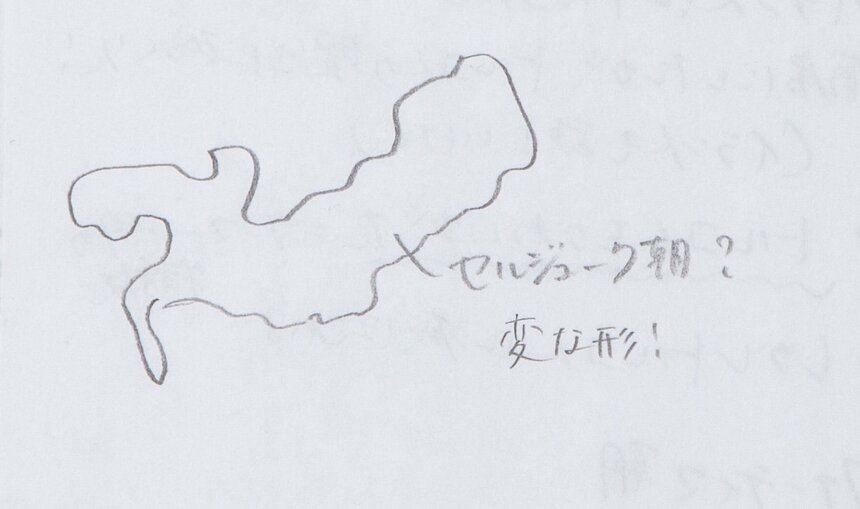 セルジューク朝?
変な形!